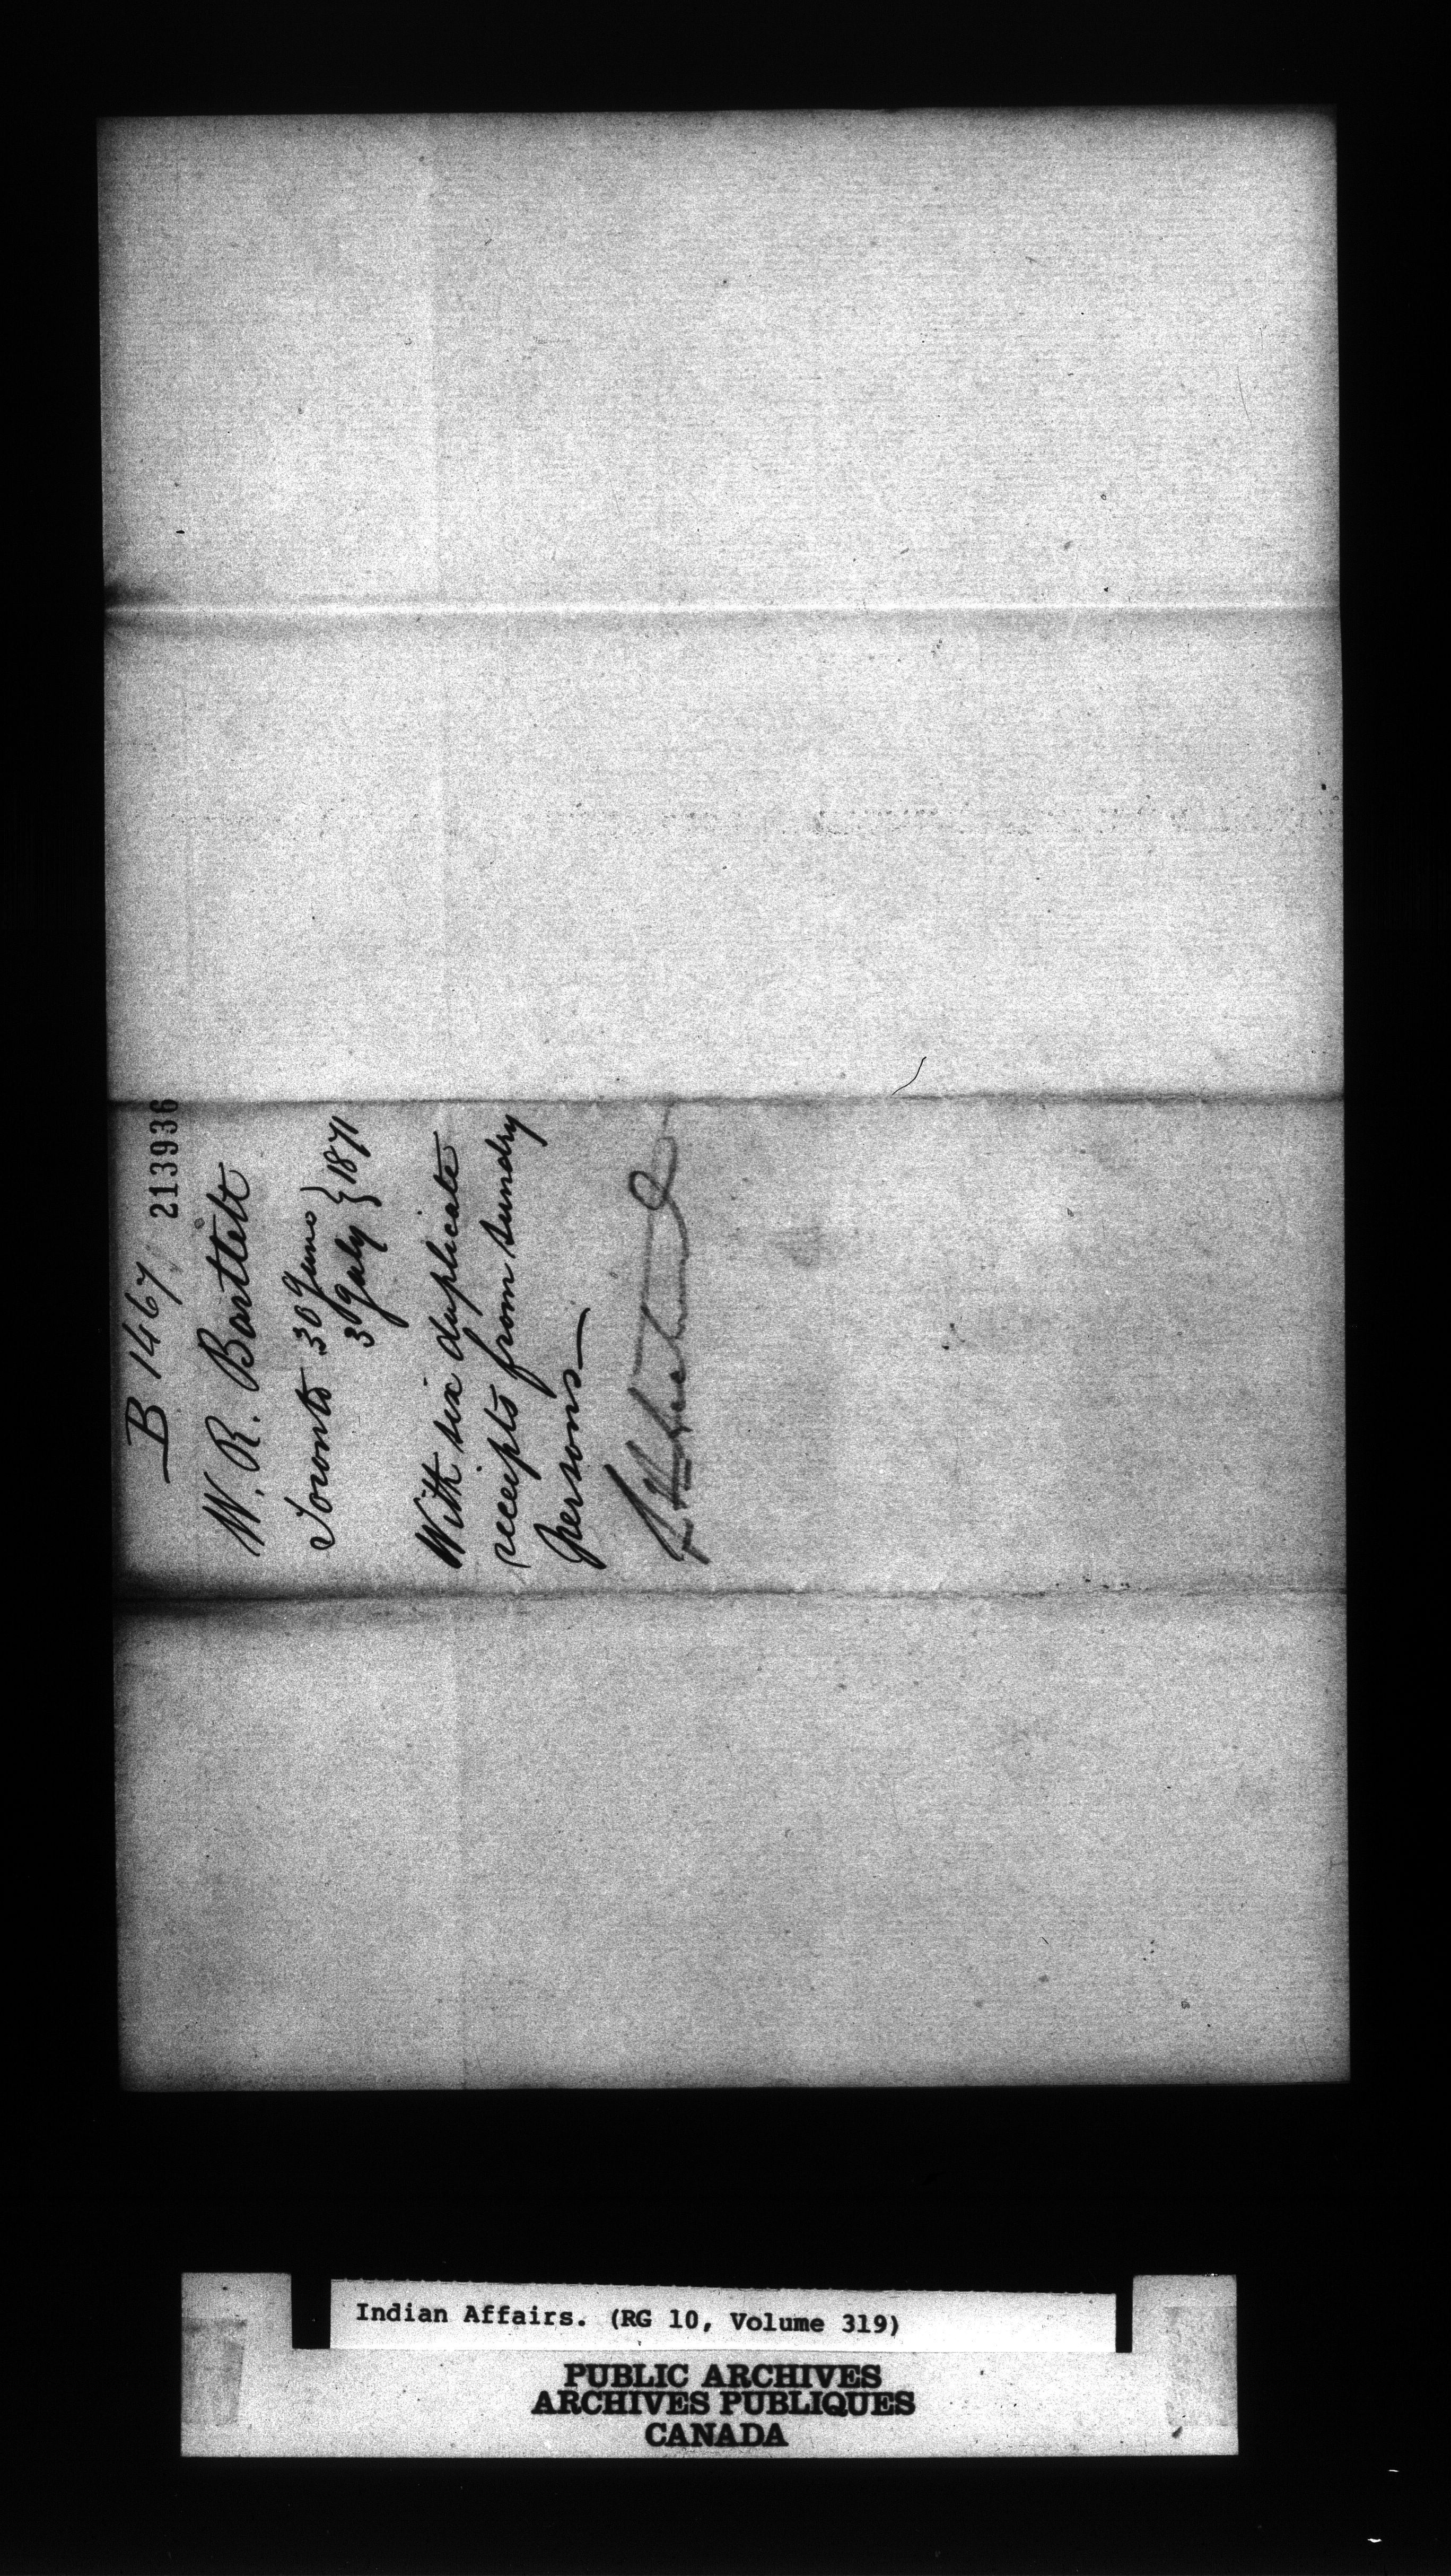 B 1467
213936
W. R. Bartlett
Toronto 30 June
3 July } 1871
With six duplicate
receipts from sundry
persons—
Indian Affairs. (RG 10, Volume 319)
PUBLIC ARCHIVES
ARCHIVES PUBLIQUES
CANADA